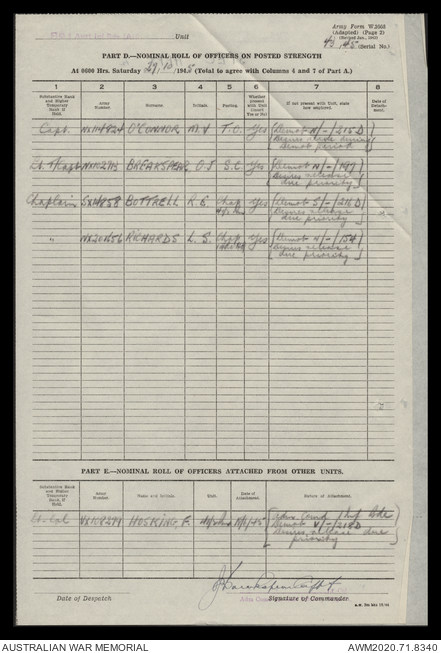 Army Form W.3008
(Adapted) (Page 2)
43/45 (Serial No.)
Unit
PART D.—NOMINAL ROLL OF OFFICERS ON POSTED STRENGTH
At 0600 Hrs. Saturday 29/12/1945 (Total to agree with Columns 4 and 7 of Part A.)
1 2 3 4 5 6 7 8
Substantive Rank and Higher Temporary Rank if Held. Army Number. Surname. Initials. Posting. Whether present with Unit (Insert Yes or No) If not present with Unit, state how employed. Date of Detachment.
Capt. O'CONNOR M. V. T.O. Yes (Demob N/-/215D)
Demob period
BREAKSPEAR O.J S.C. Yes (Demob N/-/197)
Desires release
due priority
Chaplain SX14858 BOTTRELL R. E Chap Yes (Demob S/-/216D)
Desires release
due priority
" RICHARDS L. S. Chap Yes (Demob N/-/154)
Desires release
due priority
PART E.—NOMINAL ROLL OF OFFICERS ATTACHED FROM OTHER UNITS.
Substantive Rank and Higher Temporary Rank if Held. Army Number. Name and Initials. Unit. Date of Attachment. Nature of Attachment.
Lt-Col HOSKING F. Bde
Demob V/-/218D
Desires release due
priority
Date of Despatch
Signature of Commander
AUSTRALIAN WAR MEMORIAL
AWM2020.71.8340